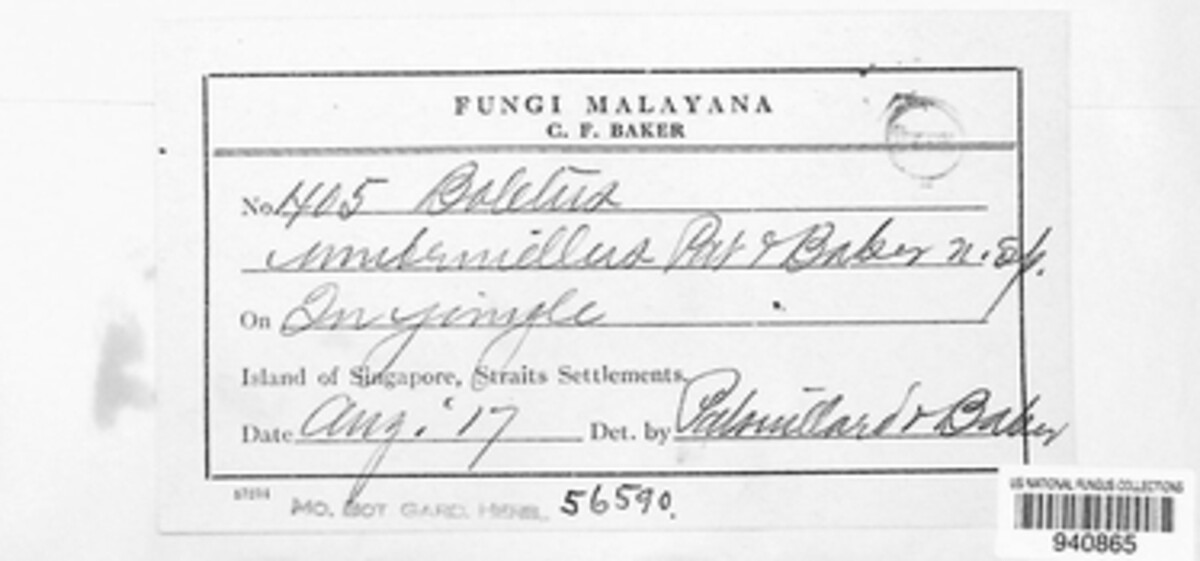 FUNGI MALAYANA
C. F. BAKER
No. 405 Boletus
Pat & Baker n. sp.
On In jungle
Island of Singapore, Straits Settlements.
Date Aug. '17 Det. by Patouillard & Baker
MO. BOT. GARD. HERB. 56590.
US NATIONAL FUNGUS COLLECTIONS
940865